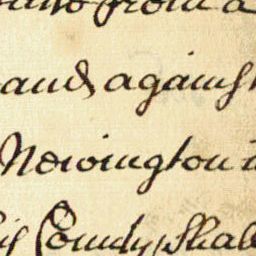 from a
and against
Newington
County, shall